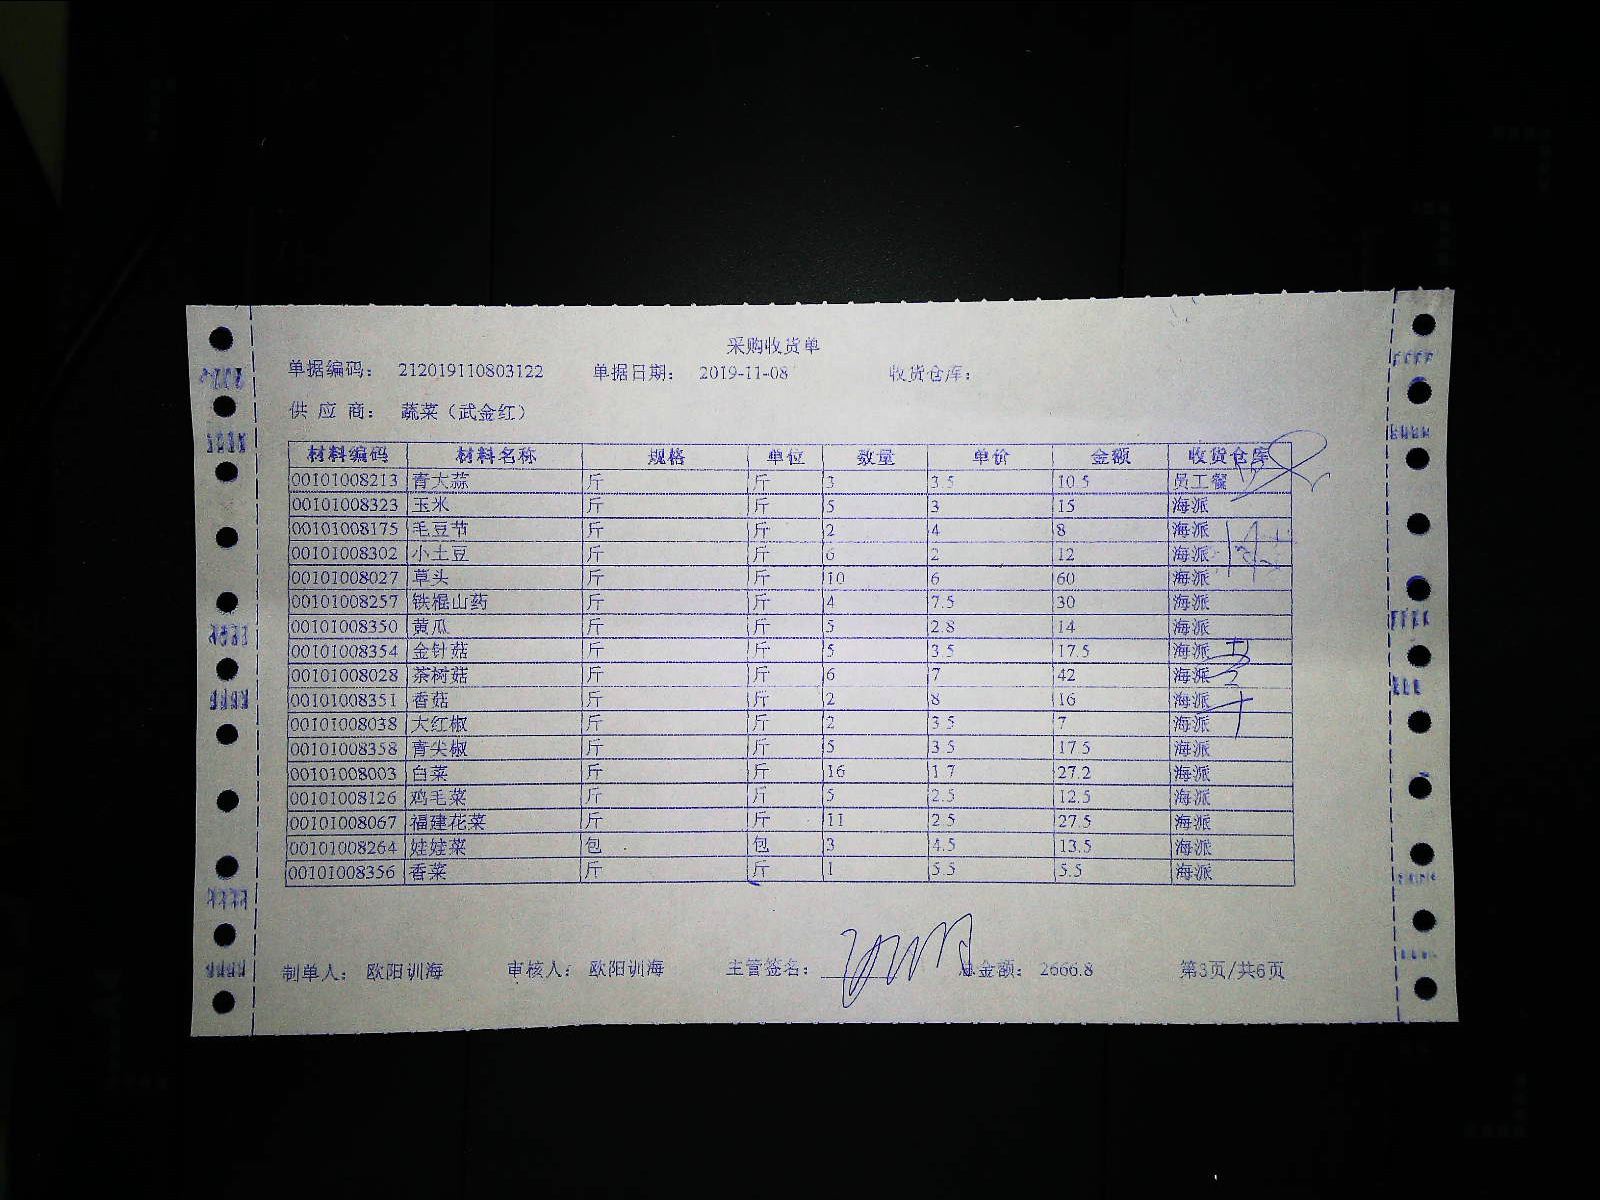 采购收货单
单据编码： 212019110803122 单据日期： 2019-11-08 收货仓库：
供 应 商： 蔬菜（武金红）
材料编码 材料名称 规格 单位 数量 单价 金额 收货仓库
00101008213 青大蒜 斤 斤 3 3.5 10.5 员工餐
00101008323 玉米 斤 斤 5 3 15 海派
00101008175 毛豆节 斤 斤 2 4 8 海派
00101008302 小土豆 斤 斤 6 2 12 海派
00101008027 草头 斤 斤 10 6 60 海派
00101008257 铁棍山药 斤 斤 4 7.5 30 海派
00101008350 黄瓜 斤 斤 5 2.8 14 海派
00101008354 金针菇 斤 斤 5 3.5 17.5 海派
00101008028 茶树菇 斤 斤 6 7 42 海派
00101008351 香菇 斤 斤 2 8 16 海派
00101008038 大红椒 斤 斤 2 3.5 7 海派
00101008358 青尖椒 斤 斤 5 3.5 17.5 海派
00101008003 白菜 斤 斤 16 1.7 27.2 海派
00101008126 鸡毛菜 斤 斤 5 2.5 12.5 海派
00101008067 福建花菜 斤 斤 11 2.5 27.5 海派
00101008264 娃娃菜 包 包 3 4.5 13.5 海派
00101008356 香菜 斤 斤 1 5.5 5.5 海派
制单人： 欧阳训海 审核人： 欧阳训海 主管签名： 总金额： 2666.8 第3页/共6页